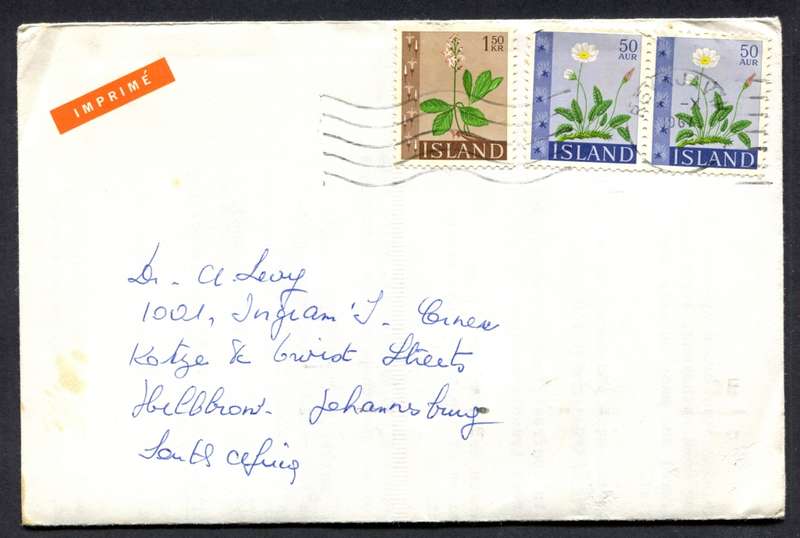 IMPRIMÉ
1 50 KR
ISLAND
50 AUR
ISLAND
50 AUR
ISLAND
Dr - A. Levy
1001, Ingram's - Corner
Kotze & Twist Streets
Hillbrow - Johannesburg
South Africa